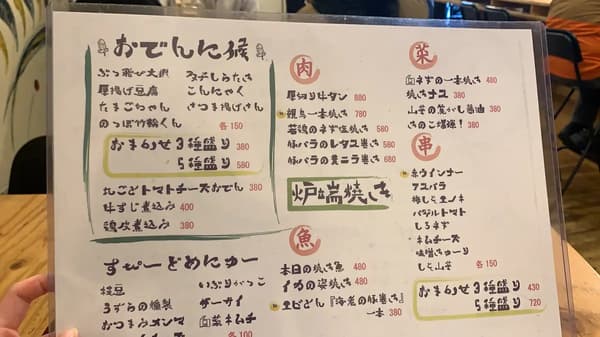 おでんに候
ぶっ飛び大根
厚揚げ豆腐
たまごちゃん
のっぽ竹輪くん
糸こんにゃく
さつま揚げさん
各150
おまかせ3種盛り 380
5種盛り 580
丸ごとトマトチーズおでん 380
牛すじ煮込み 400
鶏皮煮込み 380
すぴーどめにゅー
枝豆
うずらの燻製
おつまみメンマ
チーズ
いぶりがっこ
ザーサイ
白菜キムチ
各100
肉
厚切り牛タン 880
親鳥一本焼き 780
若鶏のネギ塩焼き 580
豚バラのレタス巻き 580
豚バラの黄ニラ巻き 680
炉端焼き
魚
本日の焼き魚 480
イカの姿焼き 480
エビどん『海老の豚巻き』
一本 380
菜
白ネギの一本焼き 480
焼きナス 380
山芋の焦がし醤油 380
きのこ爆爆! 380
串
赤ウインナー
アスパラ
梅しそエノキ
バジルトマト
しろネギ
キムチーズ
味噌きゅーり
しそ山芋 各150
おまかせ3種盛り 430
5種盛り 720